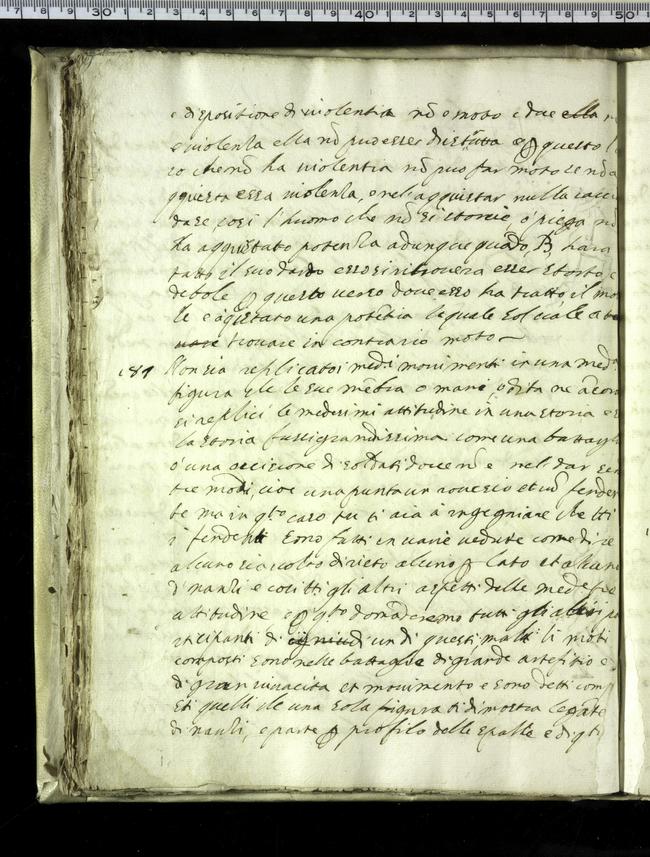 7 8 9 40 1 2 3 4 5 6 7 8 9 50
e dispositione di violentia nõ e moto e doue ella
e violenza ella nõ puo esser distrutta e ꝑ questo
ro che nõ ha violentia nõ puo far moto se nõ a
qquista essa violenza, o nel aqquistar nulla
dare cosi l'huomo che nõ si storcie o piega nõ
ha aqquistato potenza adunque quãdo, B, hara
tratto il suo dardo esso si ritrouera esser storto, e
debole ꝑ questo uerso doue esso ha tratto il mo
le e aqistato una potẽtia la quale sol uale a
trouare in contrario moto
181 Non sia replicatoi medi mouimenti in una med.a
figura che le sue mẽbra o mani, o dita ne ãcora
si replici le medesimi attitudine in una storia e se
la storia fussi grandissima come una battaglia
o una occisione di soldati doue nõ e nel dar se
tre modi, cioe una punta un rouescio et uñ fenden
te ma in q.to caso tu ti aia à ingegniare che tti
i fendenti sono fatti in varie vedute come di re
alcuno sia volto dirieto alcuno ꝑ lato et alcuno
d'nanzi e cosi tti gli altri aspetti delle medesime
attitudine e ꝑ q.to domãderemo tutti gli altri pa
rticipanti di un di questi multi li moti
composti sono nelle battaglie di grãde artefitio e
di gran viuacita et mouimento e sono detti comp
sti quelli che una sola figura ti dimostra le gãbe
dinanzi, e parte ꝑ profilo delle spalle e di q.ti